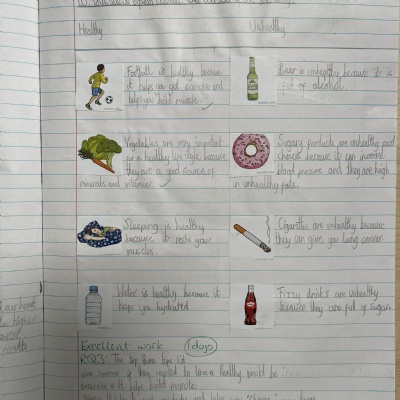 Healthy
Unhealthy
Football is healthy because
it helps you get exercise and
helps you build muscle.
Beer is unhealthy because it is
full of alcohol.
Vegetables are very important
for a healthy lifestyle because
they are a good source of
minerals and vitamins.
Sugary products are unhealthy food
choices because it can increase
blood pressure and they are high
in unhealthy fats.
Sleeping is healthy
because it rests your
muscles
Cigarettes are unhealthy because
they can give you lung cancer.
Water is healthy because it
keeps you hydrated
Fizzy drinks are unhealthy
because they are full of sugar.
Excellent work
1 dojo
RQ3: The top three tips I'd
give someone if they wanted to live a healthy would be
exercise as it helps build muscle